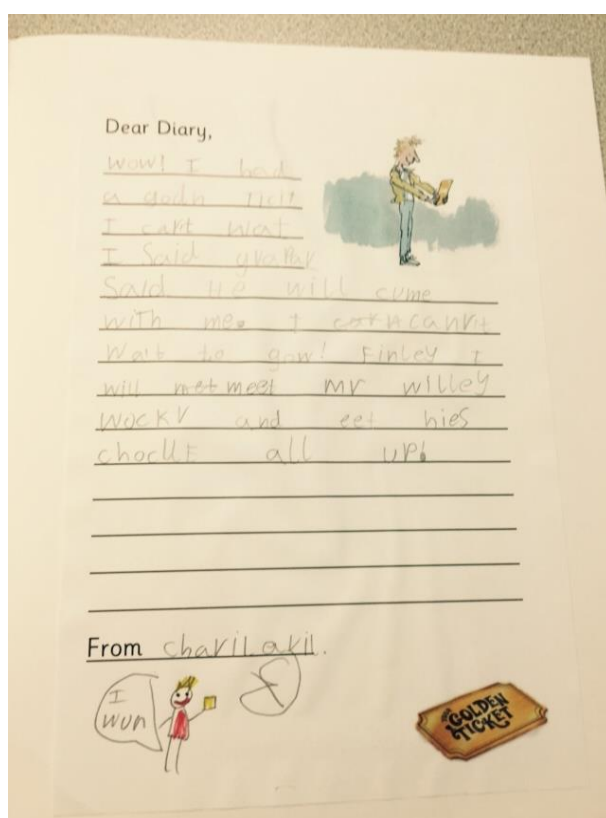 Dear Diary,
wow! I had
a godn ticit
I cant wat
I Said granpar
Said He will cume
with me. I canrt
Wait to gow! Finley I
will met meet mr willey
wocky and eet hies
choclle all up!
From charil
I
wun
THE GOLDEN
TICKET